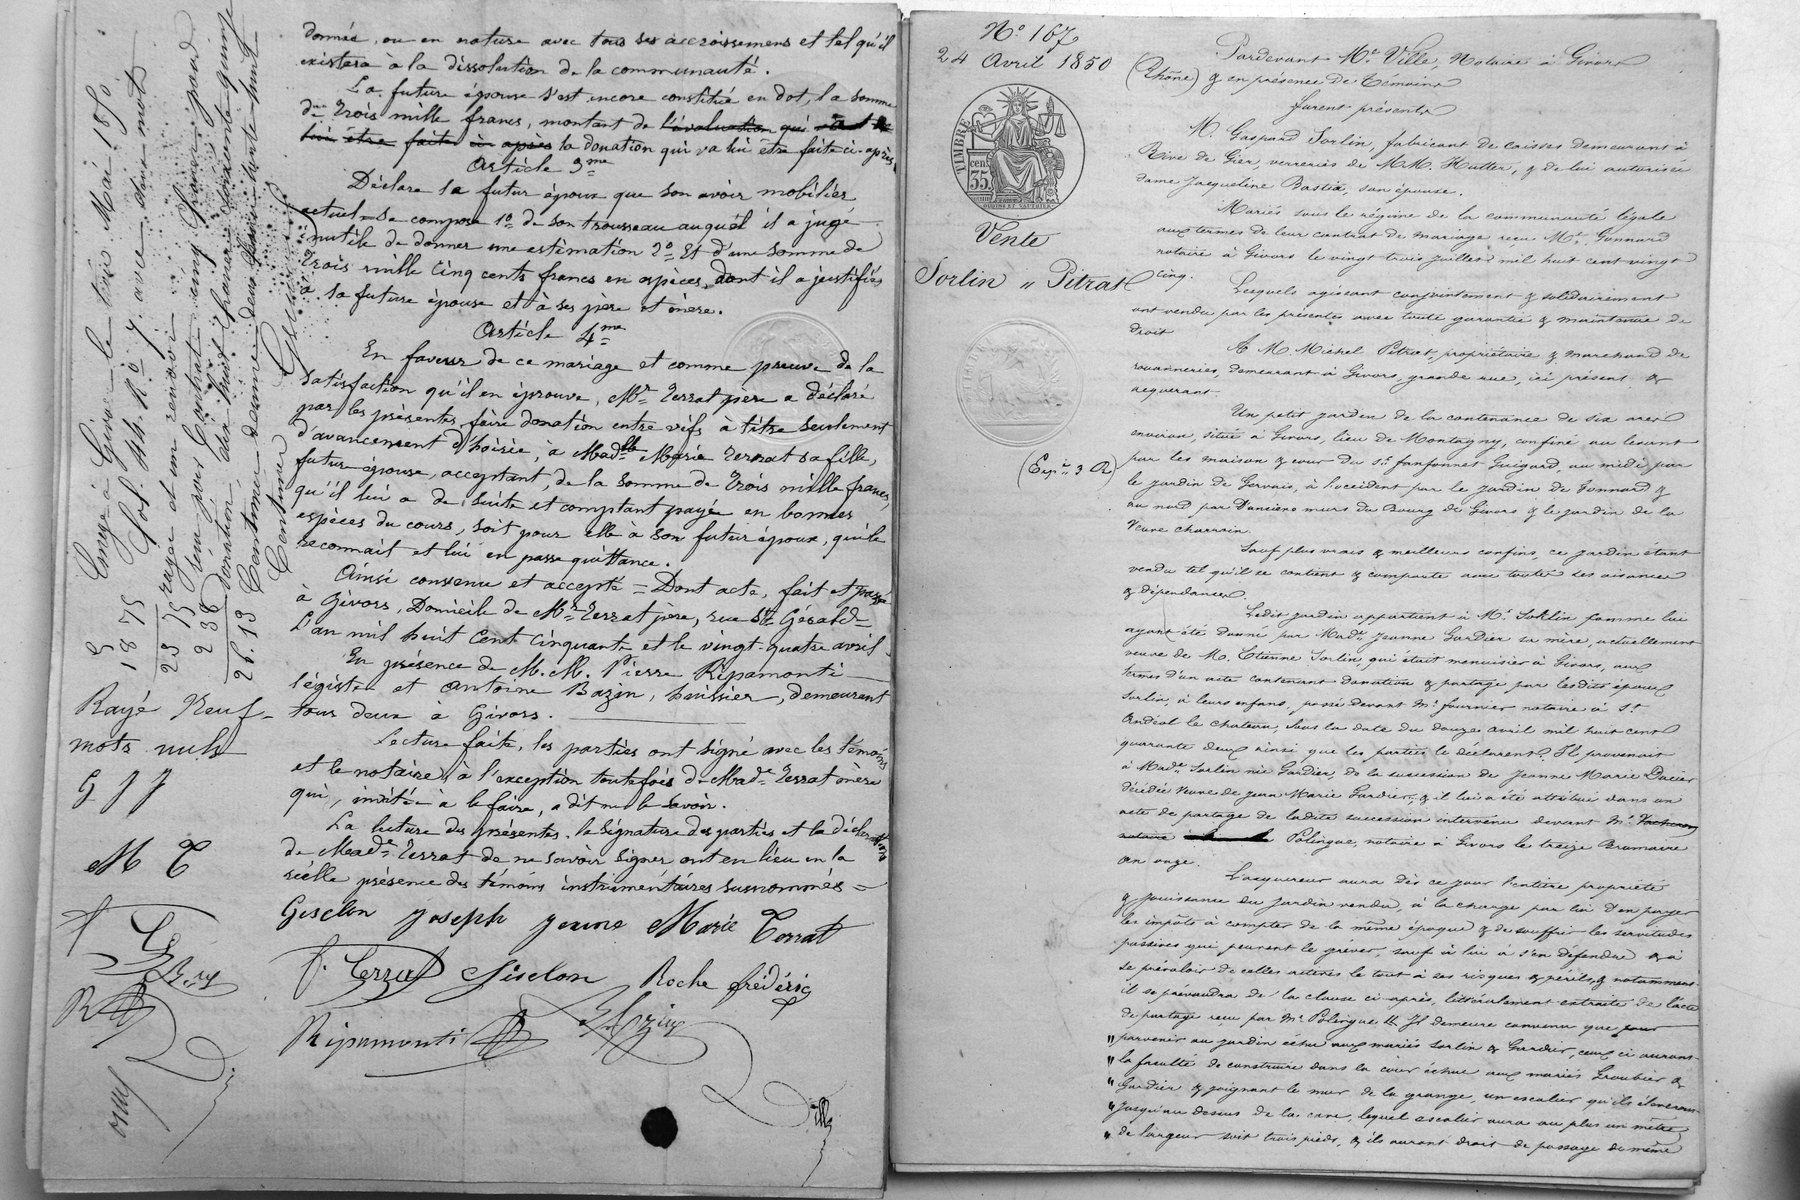 donnés, ou en nature avec tous ses accroissemens et tel qu'il
existera a la dissolution de la communauté.
La future épouse s'est encore constitué en dot, la somme
de Trois mille francs, montant de l'évaluation qui
être faite ci après la donation qui va lui être faite ci-après
Article 3me
Déclare le futur époux que son avoir mobilier
actuel se compose 1o de son trousseau auquel il a jugé
inutile de donner une estimation 2o Et d'une somme de
Trois mille Cinq cents francs en espèces, dont il a justifié
a la future épouse et à ses père et mère.
Article 4me
En faveur de ce mariage et comme preuve de la
satisfaction qu'il en éprouve, Mr Terrat père a déclaré
par les présentes faire donation entre vifs à titre seulement
d'avancement d'hoirie, à Madlle Marie Terrat sa fille,
future épouse, acceptant, de la somme de Trois mille francs,
qu'il lui a de suite et comptant payée en bonnes
espèces du cours, soit pour elle à son futur époux, qui le
reconnait et lui en passe quittance.
Ainsi convenu et accepté = Dont acte, fait et passé
à Givors, Domicile de Mr Terrat père, rue St Gérald
L'an mil huit Cent Cinquante et le vingt-quatre avril
En présence de M.M. Pierre Ripamonti
légiste et Antoine Bazin, huissier, demeurant
tous deux à Givors.
Lecture faite, les parties ont signé avec les témoins
et le notaire, à l'exception toutefois de Made Terrat mère
qui, invitée à le faire, a dit ne le savoir.
La lecture des présentes, la signature des parties et la déclaration
de Made Terrat de ne savoir signer ont eu lieu en la
réelle présence des témoins instrumentaires susnommés =
Giselon Joseph Jeanne Marie Terrat
f. Terrat Giselon Roche frédéric
Ripamonti Bazin
Ville
Enregé à Givors le trois Mai 1850
fol 44 Ro
rayée et un renvoi
2 38 Donation
26.13 Centimes
5
18 75
23 75
Rayé Neuf
mots nuls
G J J
M T
No 167
24 Avril 1850
TIMBRE
35
Vente
Sorlin " Pitrat
(Expn 3 R)
Pardevant Me Ville, Notaire à Givors
(Rhône) & en présence de Témoins
furent présents
M. Gaspard Sorlin, fabricant de caisses demeurant à
Rive de Gier, verreries de M.M. Hutter, & de lui autorisée
dame Jacqueline Bastia, son épouse.
Mariés sous le régime de la communauté légale
aux termes de leur contrat de mariage reçu Me Gonnard
notaire à Givors le vingt trois juillet mil huit cent vingt
cinq.
Lesquels agissant conjointement & solidairement
ont vendu par les présentes avec toute garantie & maintenue de
droit
A M. Michel Pitrat, propriétaire & marchand de
rouanneries, demeurant à Givors, grande rue, ici présent &
acquerant.
Un petit jardin de la contenance de six ares
environ, situé à Givors, lieu de Montagny, confiné au levant
par les maison & cour du Sr Guigard, au midi par
le jardin de Gervais, à l'occident par le jardin de Gonnard &
au nord par l'ancien murs du Bourg de Givors & le jardin de la
Veuve charrain.
Sauf plus vrais & meilleurs confins, ce jardin étant
vendu tel qu'il se contient & comporte avec toutes ses aisances
& dépendances.
Ledit jardin appartient à Mr Sorlin comme lui
ayant été donné par Made Jeanne Gardier sa mère, actuellement
veuve de M. Etienne Sorlin, qui était menuisier à Givors, aux
termes d'un acte contenant donation & partage par lesdits époux
Sorlin, à leurs enfans, passé devant Me fournier notaire à St
Andéol le chateau, sous la date du douze avril mil huit cent
quarante deux ainsi que les parties le déclarent. Il provenait
à Made Sorlin née Gardier, de la succession de Jeanne Marie Dacier
décédée veuve de Jean Marie Gardier, & il lui a été attribué dans un
acte de partage de ladite succession intervenu devant Me
notaire Polingue, notaire à Givors le treize Brumaire
an onze.
L'acquereur aura dès ce jour l'entière propriété
& jouissance du jardin vendu, à la charge par lui d'en payer
les impôts à compter de la même époque & de souffrir les servitudes
passives qui peuvent le gréver, sauf à lui à s'en défendre & à
se prévaloir de celles actives le tout à ses risques & périls, & notamment
il se prévaudra de la clause ci-après, littéralement extraite de l'acte
de partage reçu par Me Polingue " Il demeure convenu que pour
" parvenir au jardin échue aux mariés Sorlin & Gardier, ceux ci auront
" la faculté de construire dans la cour échue aux mariés Groubier &
" Gardier & joignant le mur de la grange, un escalier qu'ils éleveront
" jusqu'au dessus de la cave, lequel escalier aura au plus un mètre
" de largeur soit trois pieds, & ils auront droit de passage de même